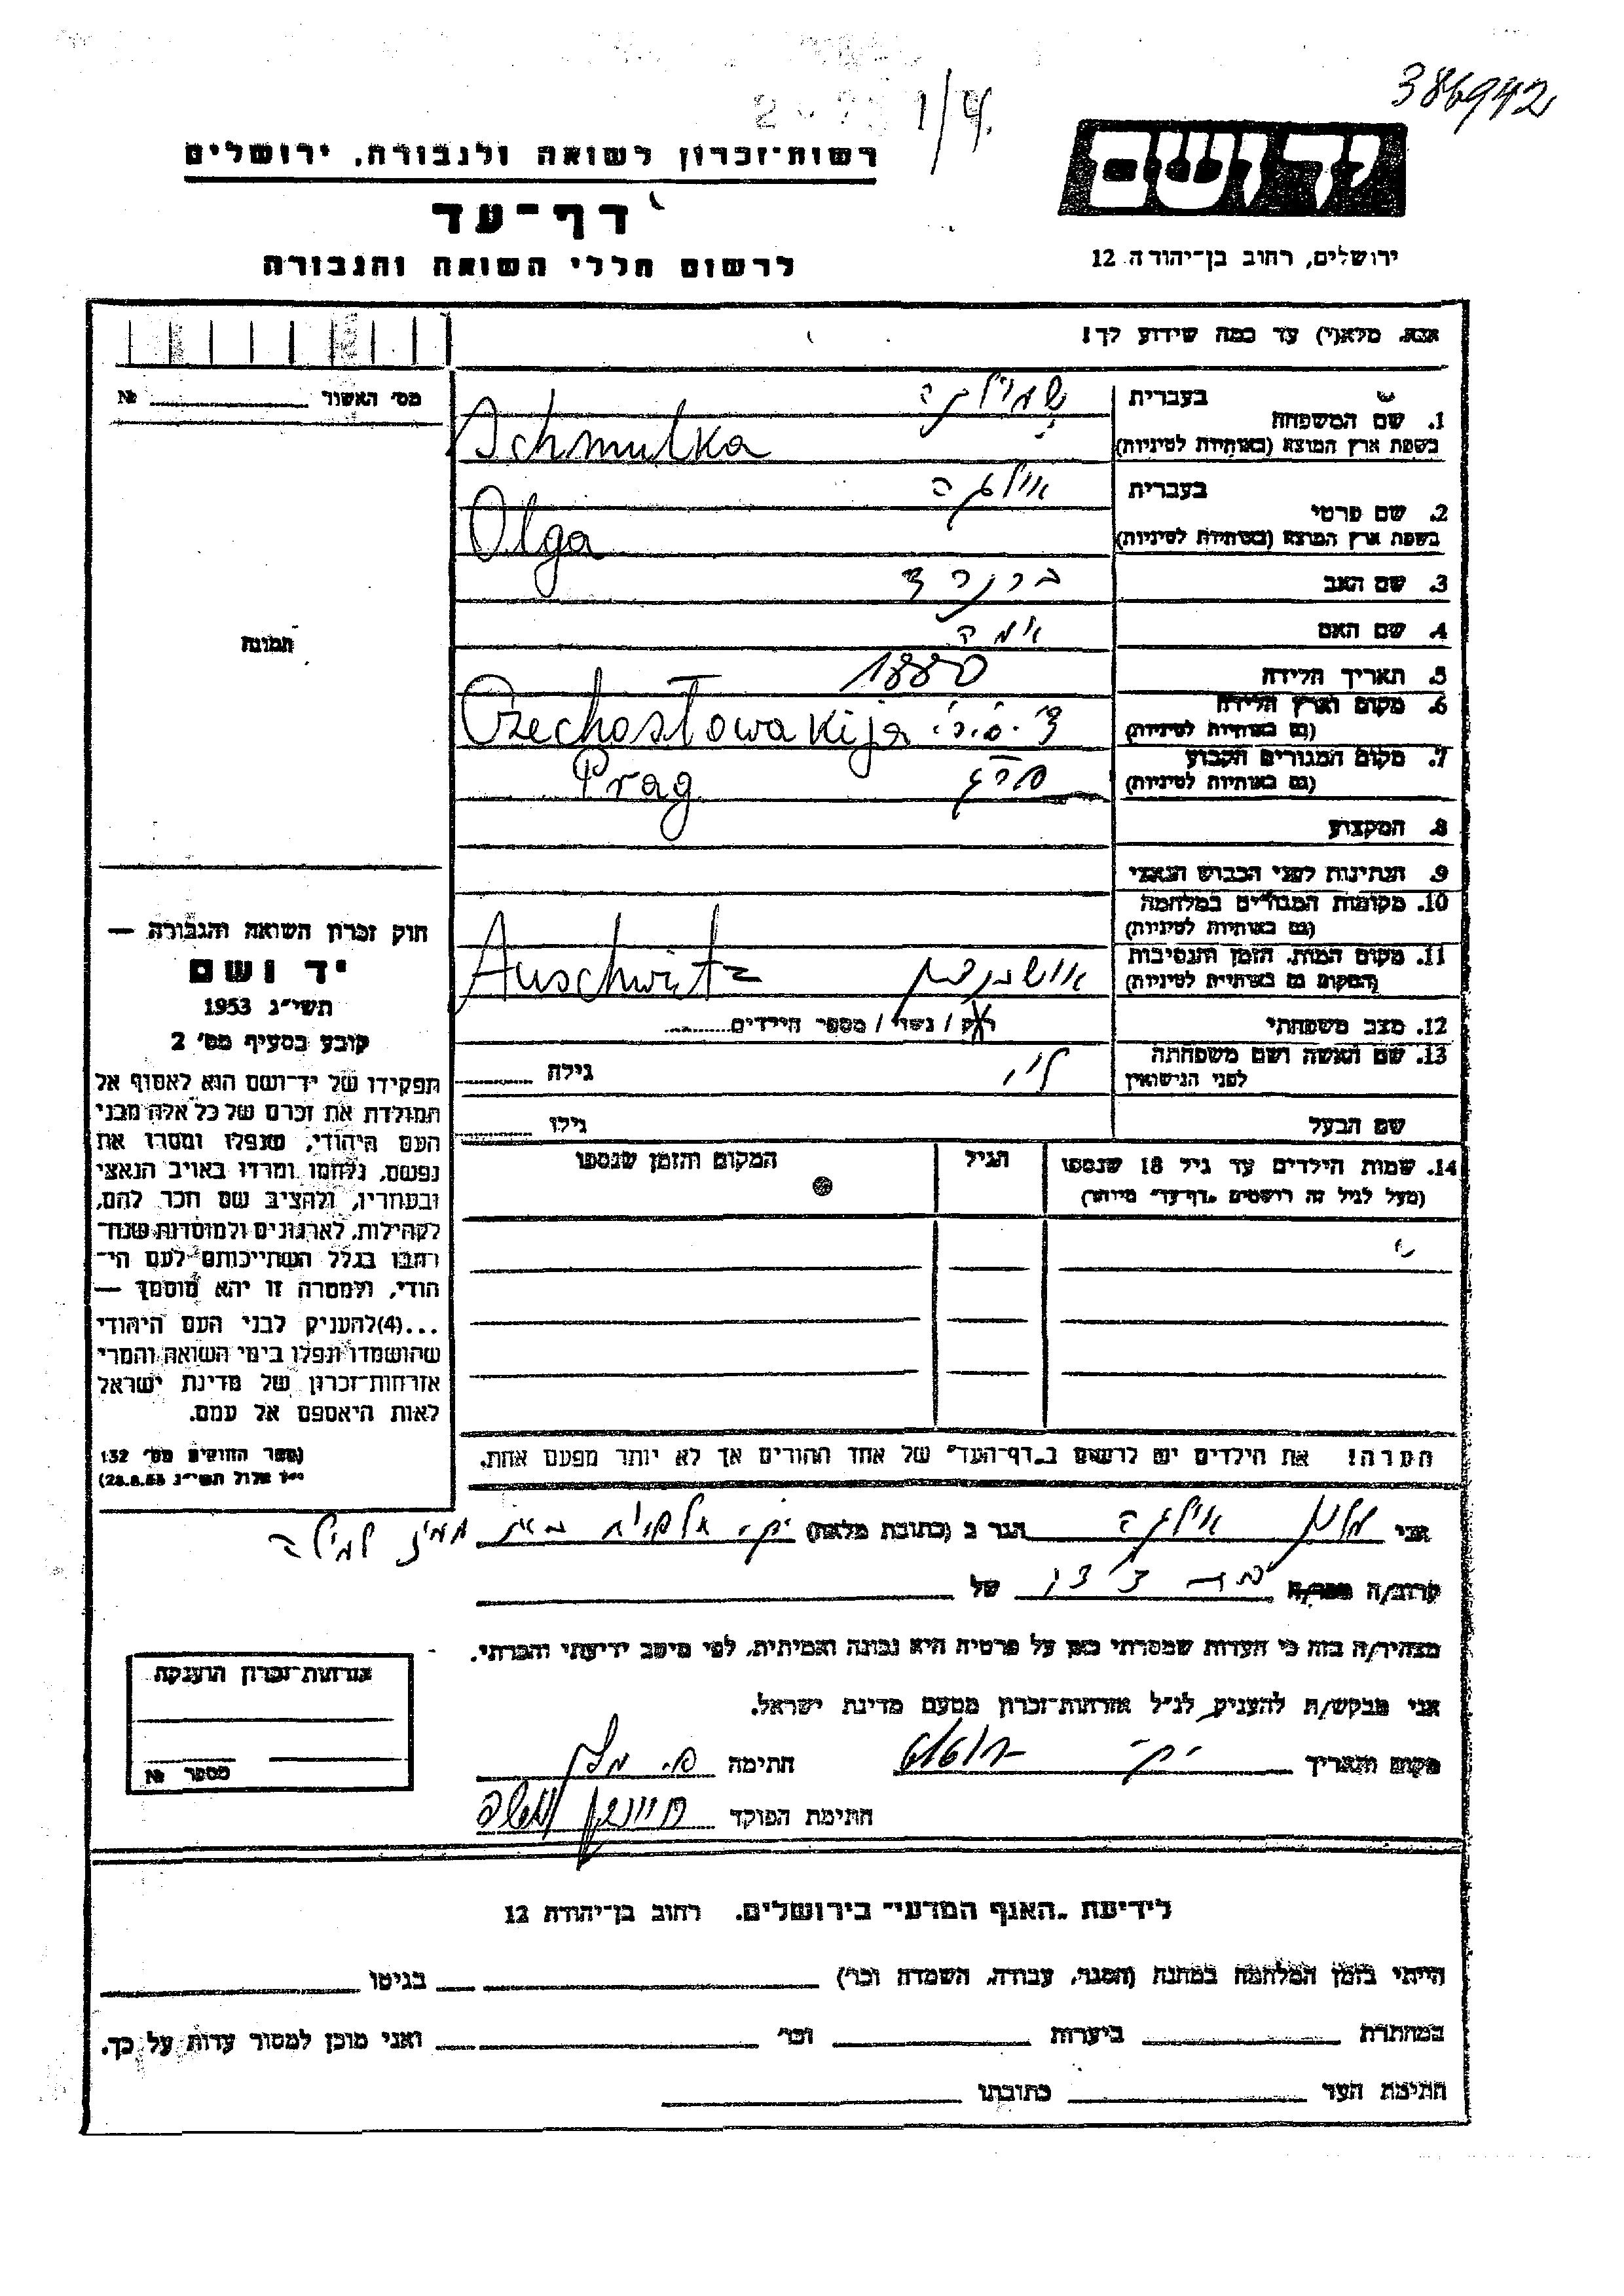 386942
1/4
רשות-זכרון לשואה ולגבורה, ירושלים
דף-עד
לרשום חללי השואה והגבורה
יד ושם
ירושלים, רחוב בן-יהודה 12
אנא, מלא(י) עד כמה שידוע לך!
מס' האשור № 
1. שם המשפחה
בעברית שמולקה
בשפת ארץ המוצא (באותיות לטיניות) Schmulka
2. שם פרטי
בעברית אולגה
בשפת ארץ המוצא (באותיות לטיניות) Olga
3. שם האב ברנרד
4. שם האם אמה
5. תאריך הלידה 1880
6. מקום וארץ הלידה
(גם באותיות לטיניות) צ'.ס.ר. Czechosłowakija
7. מקום המגורים הקבוע
(גם באותיות לטיניות) פרג Prag
8. המקצוע
9. הנתינות לפני הכבוש הנאצי
10. מקומות המגורים במלחמה
(גם באותיות לטיניות)
11. מקום המות, הזמן והנסיבות
(המקום גם באותיות לטיניות) אושביץ Auschwitz
12. מצב משפחתי רוק / נשוי / מספר הילדים
13. שם האשה ושם משפחתה
לפני הנישואין גילה
שם הבעל גילו
14. שמות הילדים עד גיל 18 שנספו
(מעל לגיל זה רושמים "דף-עד" מיוחד)
הגיל
המקום והזמן שנספו
הערה! את הילדים יש לרשום ב"דף-העד" של אחד ההורים אך לא יותר מפעם אחת.
תמונה
חוק זכרון השואה והגבורה —
יד ושם
תשי"ג 1953
קובע בסעיף מס' 2
תפקידו של יד-ושם הוא לאסוף אל
המולדת את זכרם של כל אלה מבני
העם היהודי, שנפלו ומסרו את
נפשם, נלחמו ומרדו באויב הנאצי
ובעוזריו, ולהציב שם וזכר להם,
לקהילות, לארגונים ולמוסדות שנח־
רבו בגלל השתייכותם לעם הי־
הודי, ולמטרה זו יהא מוסמך —
...(4)להעניק לבני העם היהודי
שהושמדו ונפלו בימי השואה והמרי
אזרחות-זכרון של מדינת ישראל
לאות היאספם אל עמם.
(ספר החוקים מס' 132
י"ז אלול תשי"ג 28.8.53)
אני אולגה הגר ב (כתובת מלאה) ק.
קרוב/ה מכר/ה של
מצהיר/ה בזה כי העדות שמסרתי כאן על פרטיה היא נכונה ואמיתית, לפי מיטב ידיעתי והכרתי.
אני מבקש/ת להעניק לנ"ל אזרחות-זכרון מטעם מדינת ישראל.
מקום ותאריך ק. חתימה
חתימת הפוקד
אזרחות-זכרון הוענקה
מספר №
לידיעת "האגף המדעי" בירושלים, רחוב בן-יהודה 12
הייתי בזמן המלחמה במחנה (הסגר, עבודה, השמדה וכו') בגיטו
במחתרת ביערות וכו' ואני מוכן למסור עדות על כך.
חתימת העד כתובתו